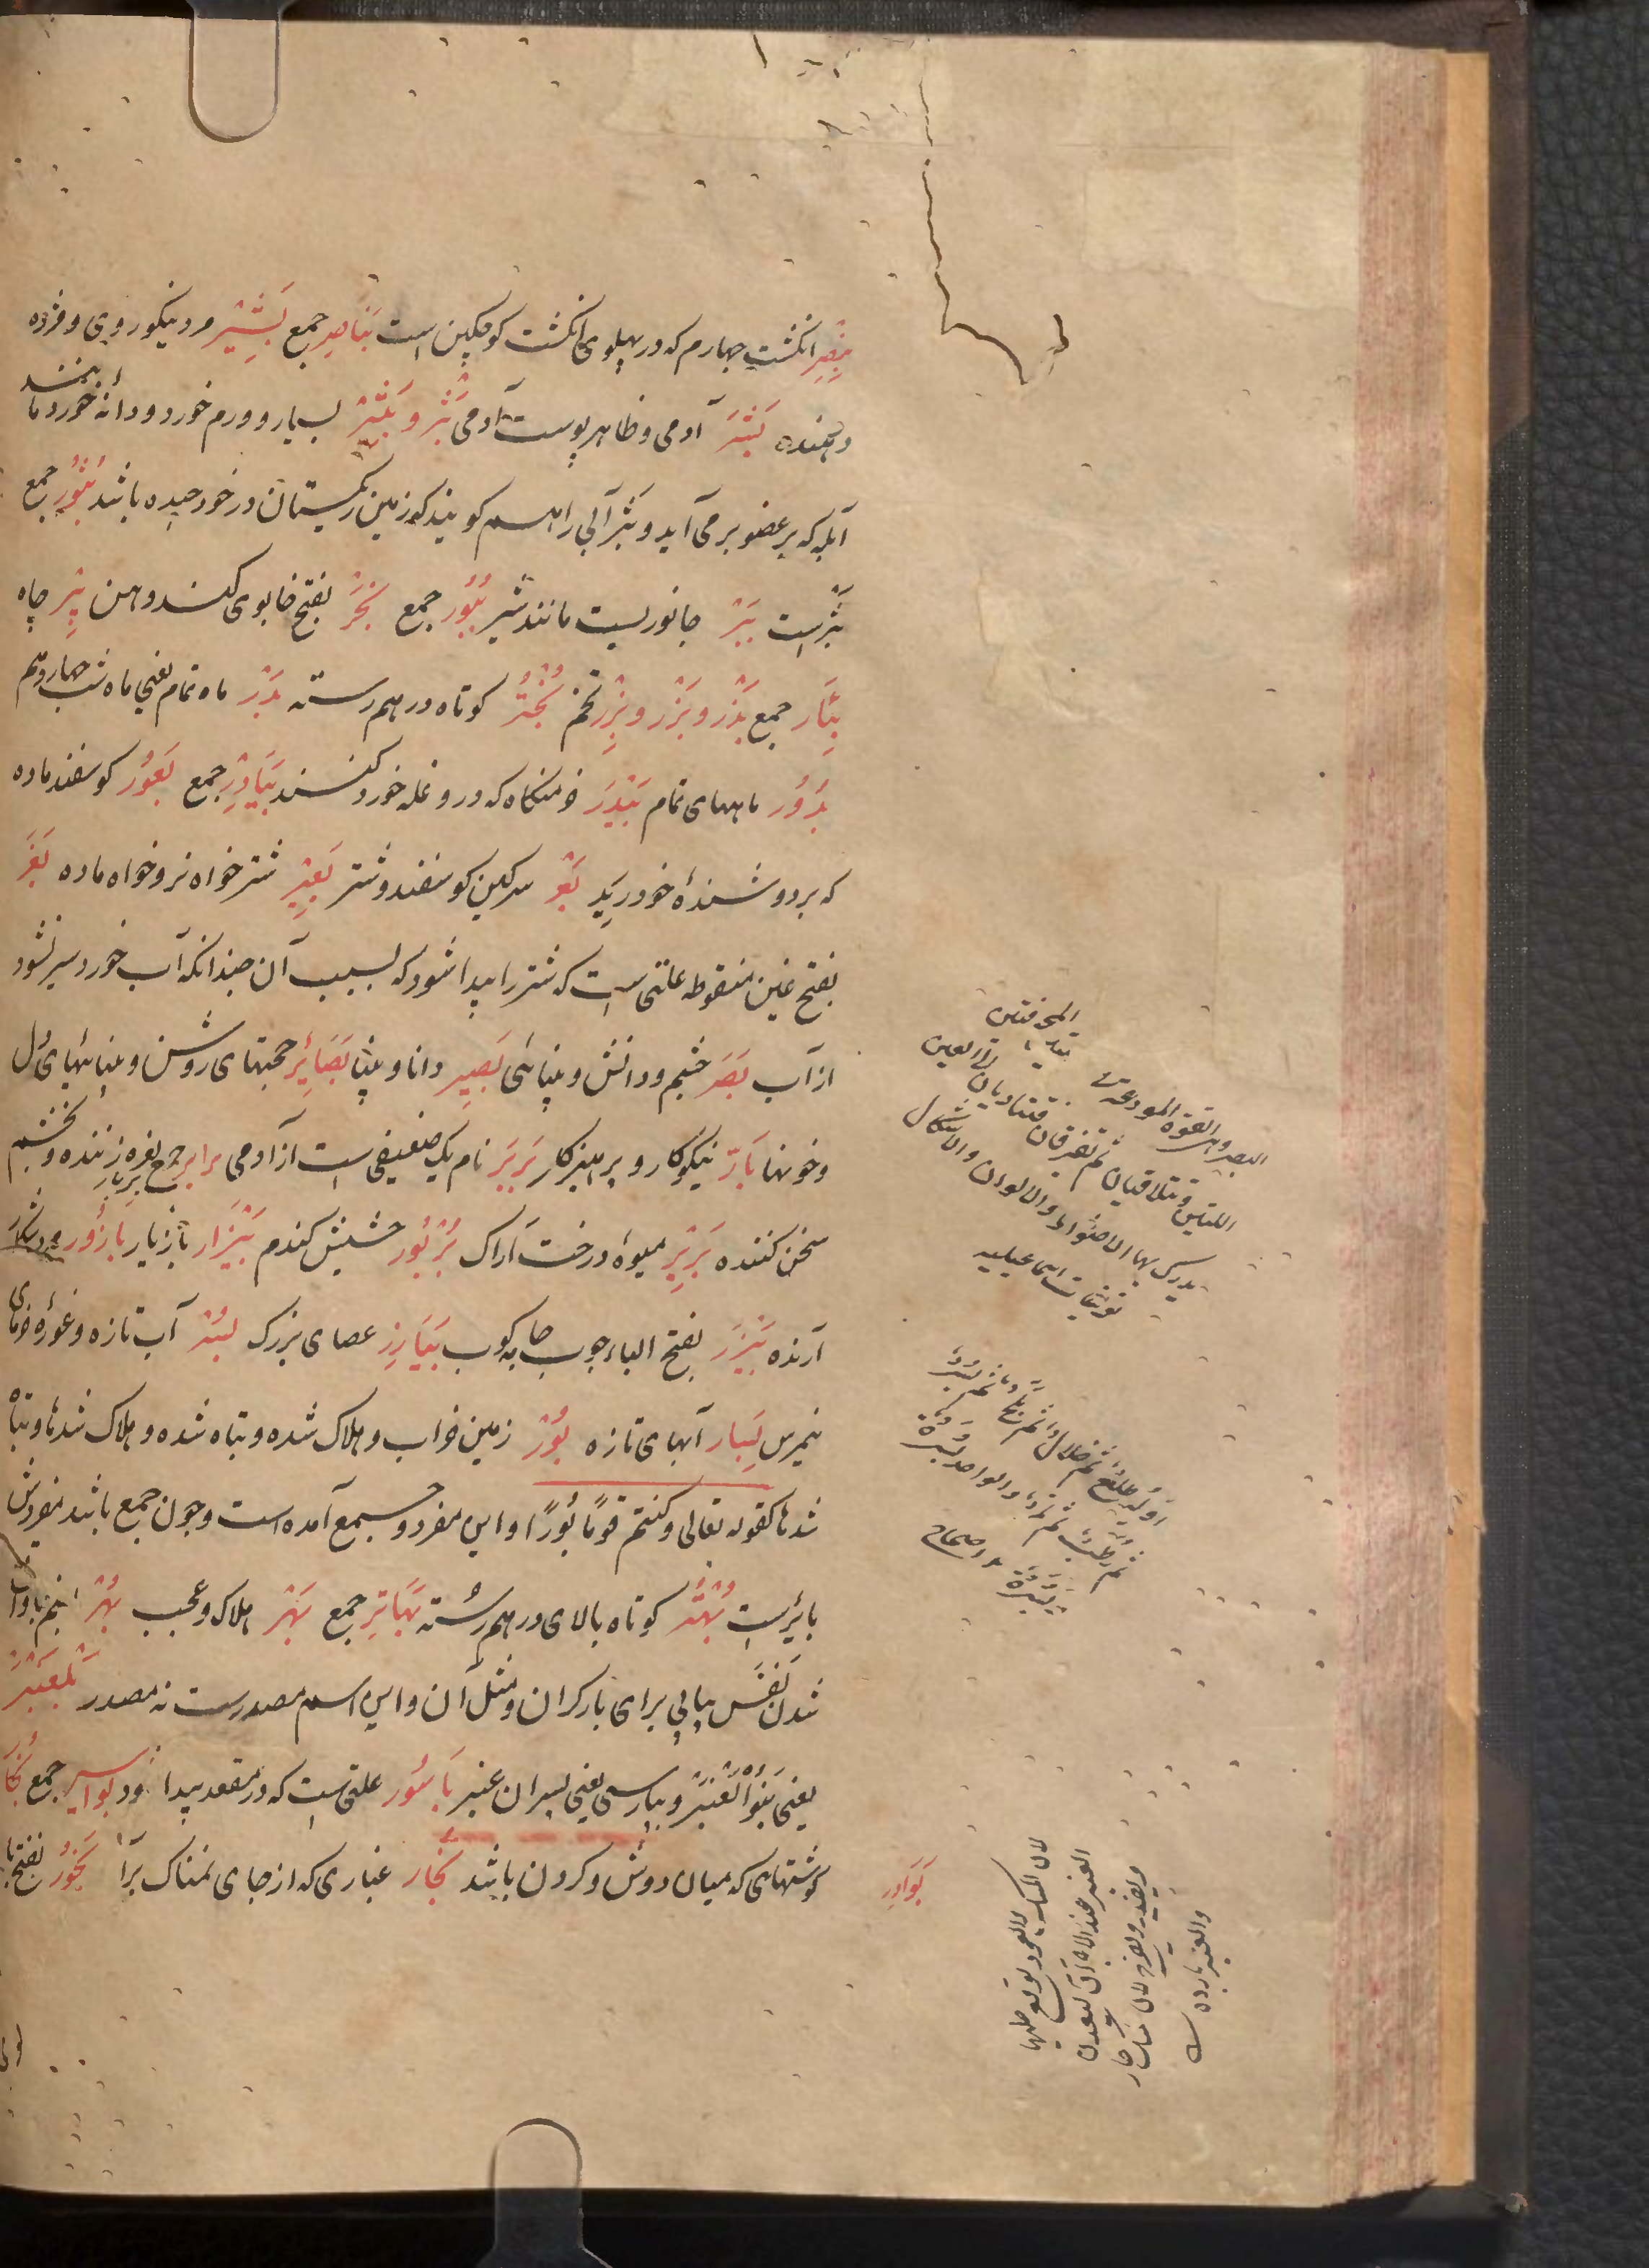 بِنْصِر انکشت چهارم که در پهلوی انکشت کوچکین است بَنَاصِر جمع بَشِیْر مرد نیکو روی و مژده
دهنده بَشَر آدمی و ظاهر پوست آدمی بَثْر و بَثِیْر بسیار و ورم خورد و دانه خورد مانند
آبله که بر عضو برمی آید و بثر آبی را هم کویند که زمین ریکستان در خود چیده باشد بُثُوْر جمع
بثر است بَبْر جانوریست مانند شیر بُبُوْر جمع بَخَر بفتح خا بوی کند دهن بِئْر چاه
بِئَار جمع بَذْر و بَزْر و بِزْر تخم بُحْتُر کوتاه درهم رسته بَدْر ماه تمام یعنی ماه شب چهاردهم
بُدُوْر ماههای تمام بَیْدَر خرمنکاه که درو غله خورد کنند بَیَادِر جمع بَعُوْر کوسفند ماده
که بر دوشندهٔ خود ریَد بَعْر سرکین کوسفند و شتر بَعِیْر شتر خواه نر و خواه ماده بَغَر
بفتح غین منقوطه علتی است که شتر را پیدا شود که بسبب آن چندانکه آب خورد سیر نشود
از آب بَصَر چشم و دانش و بینائی بَصِیر دانا و بینا بَصَائِر حجتهای روشن و بینائیهای دل
و خونها بَارّ نیکوکار و پرهیزکار بَرْبَر نام یک صنفی است از آدمی برابر جمع بربار نعره زننده و بخشم
سخن کننده بَرِیْر میوهٔ درخت اراک بُرْبُور حشیش کندم بَیْزَار بازیار بازُور
آرنده بَیْزَر بفتح الباء چوب جامه کوب بَیَازِر عصای بزرک بُسْر آب تازه و غورهٔ خرمای
نیمرس بِسَار آبهای تازه بُوْر زمین خراب و هلاک شده و تباه شده و هلاک شدها و تباه
شدها کقوله تعالی و کنتم قومًا بُورًا و این مفرد و جمع آمده است و چون جمع باشد مفردش
بائر است بُهْتُر کوتاه بالای درهم رسته بَهَاتِر جمع بَهْر هلاک و عجب بُهْر
شدن نفس پیاپی برای بار کران و مثل آن و این اسم مصدرست نه مصدر بَلْعَنْبَر
یعنی بَنُوْالْعَنْبَر و بپارسی یعنی پسران عنبر بَاسُور علتی است که در مقعد پیدا شود بواسیر جمع
بَوَادِر کوشتهای که میان دوش و کردن باشد بُخَار غباری که از جای نمناک برآ بَخُوْر بفتح با
البصر وهی القوة المودعة
اللتین تتلاقیان ثم تفترقان فتتأدیان الی العین
یدرک بها الاضواء والالوان والاشکال
تعریفات اسماعیلیه
اوله طلع ثم خلال ثم بلح ثم بسر
ثم رطب ثم تمر والواحد بسرة
صحاح